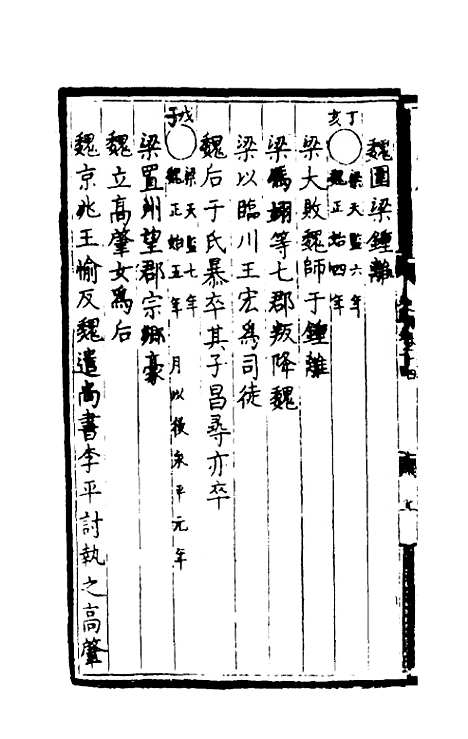 魏圍梁鍾離
丁亥
梁天監六年
魏正始四年
梁大敗魏師于鍾離
梁馮翊等七郡叛降魏
梁以臨川王宏爲司徒
魏后于氏暴卒其子昌尋亦卒
戊子
梁天監七年
魏正始五年 月以後永平元年
梁置州望郡宗鄉豪
魏立高肇女爲后
魏京兆王愉反魏遣尚書李平討執之高肇